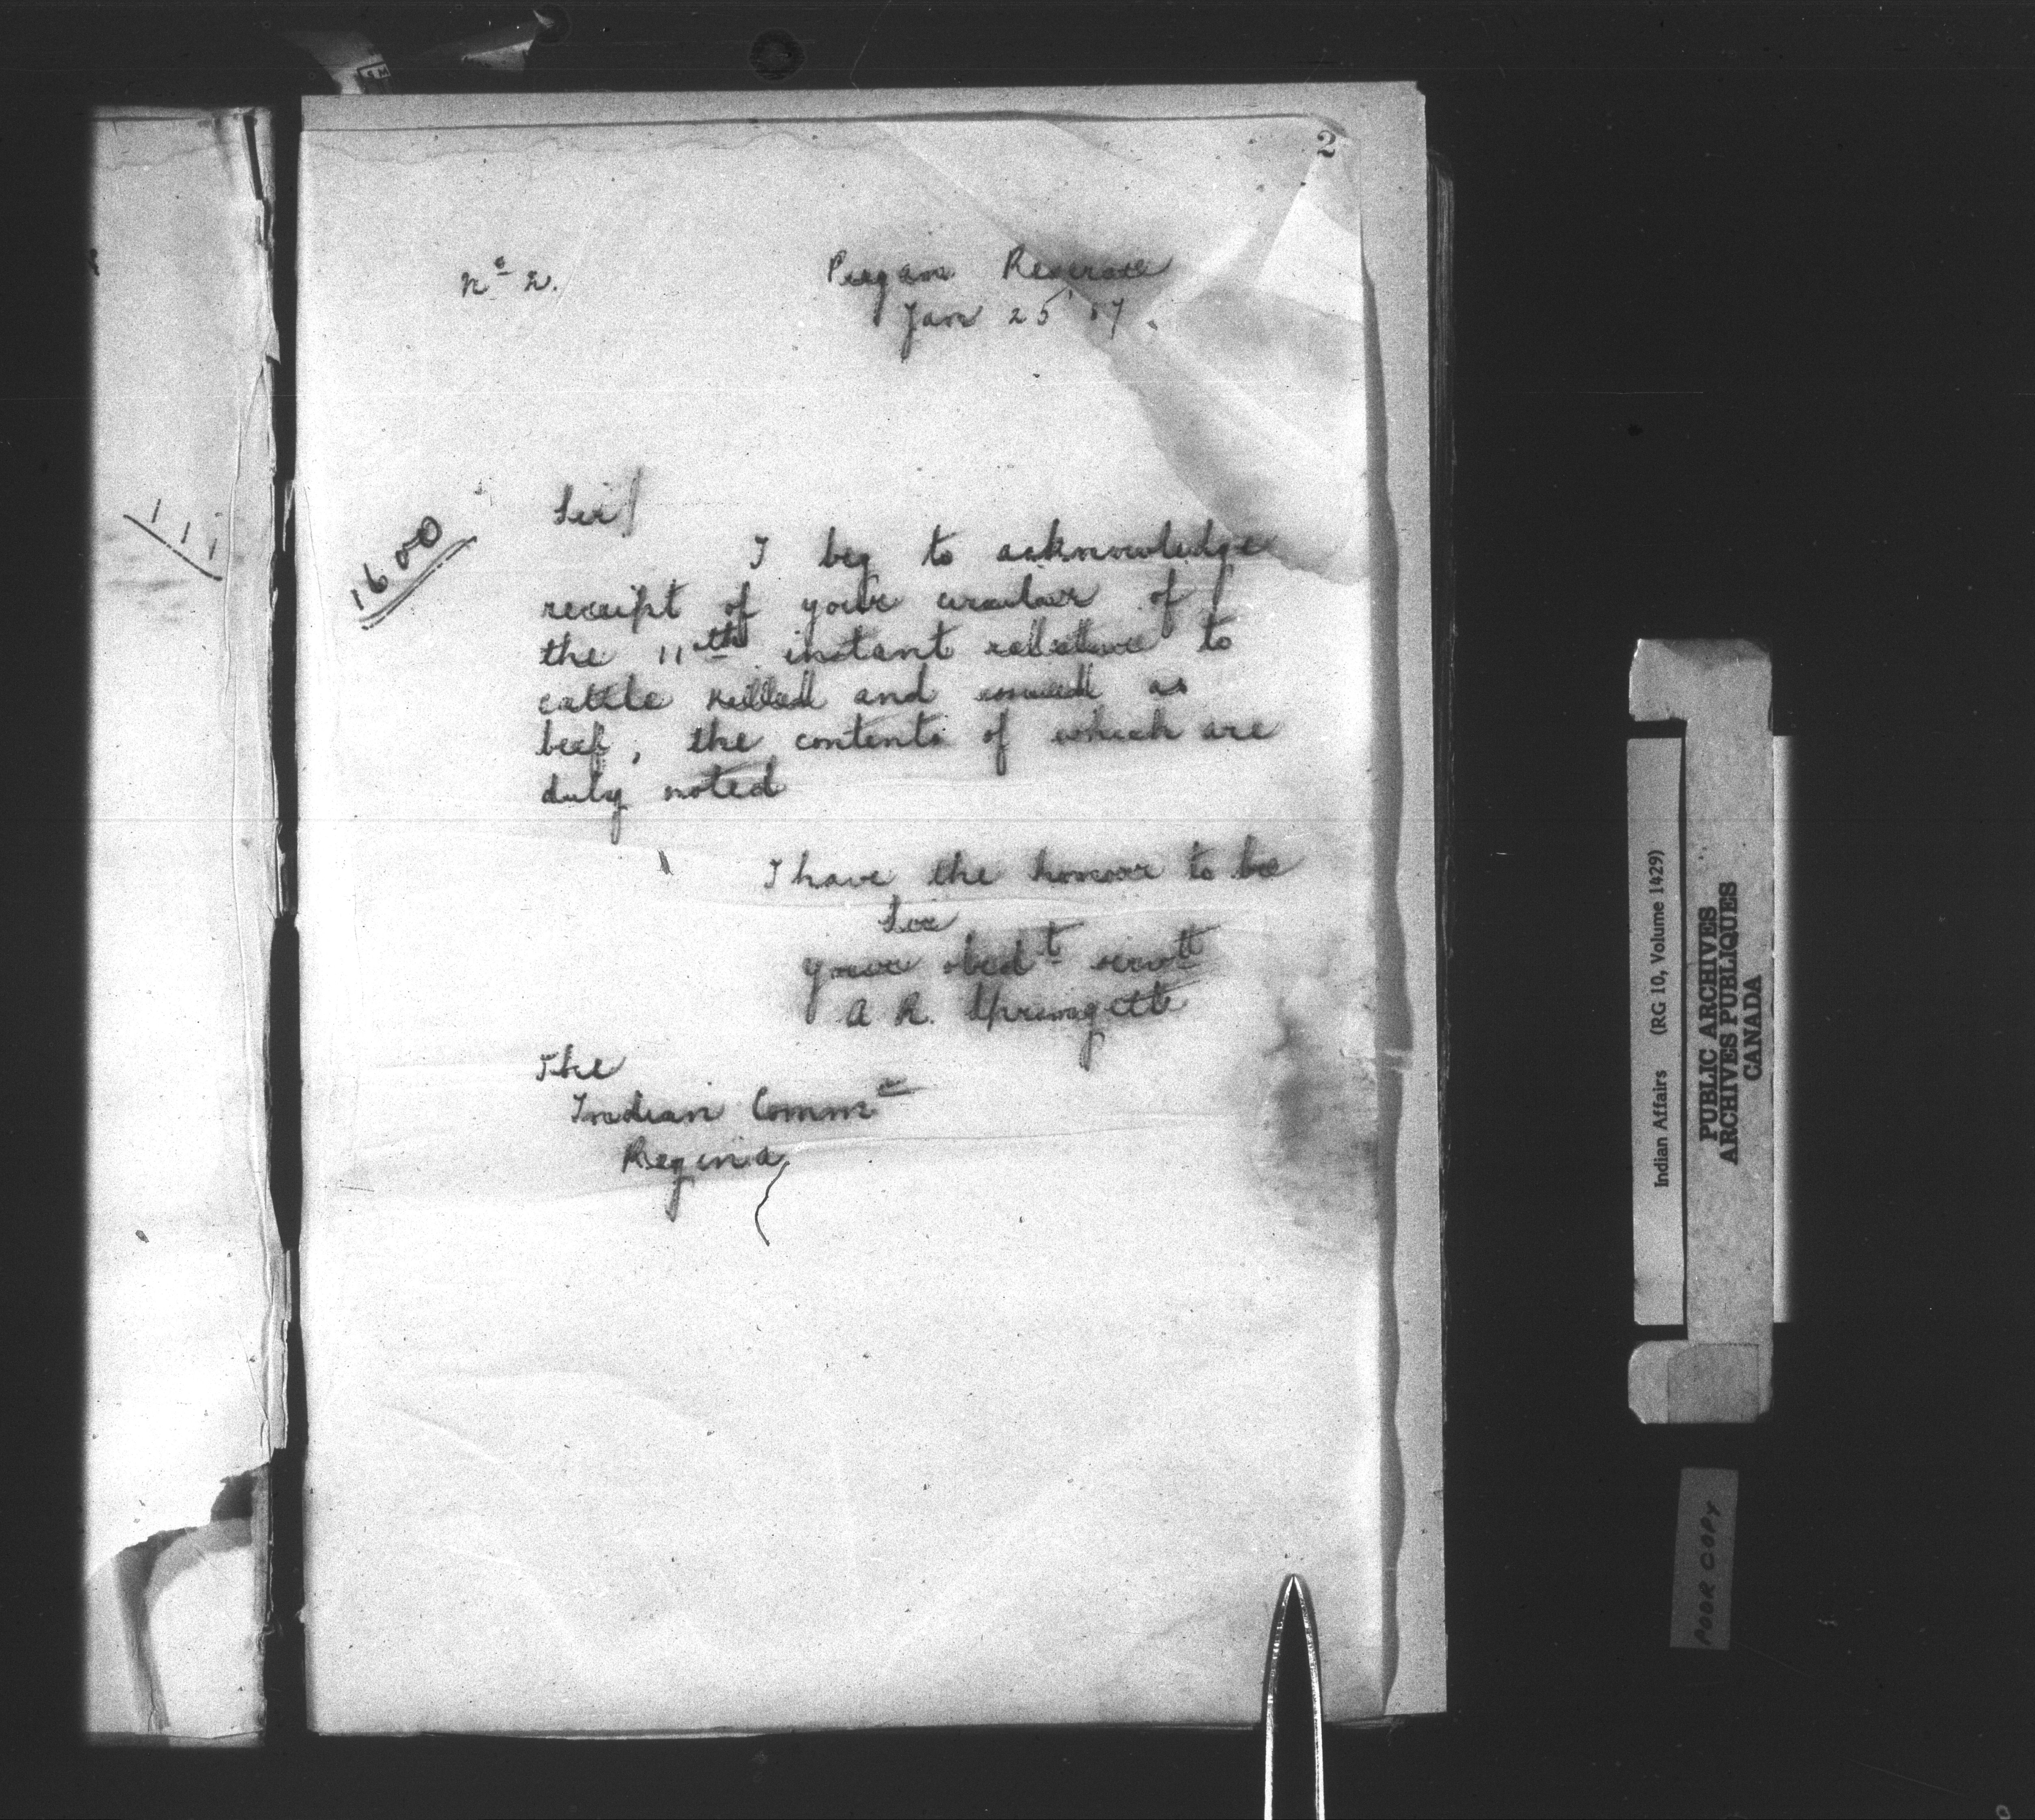 2
No 2.
Piegan Reserve
Jan 25 '87.
1600
Sir/
I beg to acknowledge
receipt of your circular of
the 11th instant relative to
cattle killed and issued as
beef, the contents of which are
duly noted
I have the honour to be
Sir
your obedt servt
A R. Springett
The
Indian Commr
Regina
Indian Affairs (RG 10, Volume 1429)
PUBLIC ARCHIVES
ARCHIVES PUBLIQUES
CANADA
POOR COPY